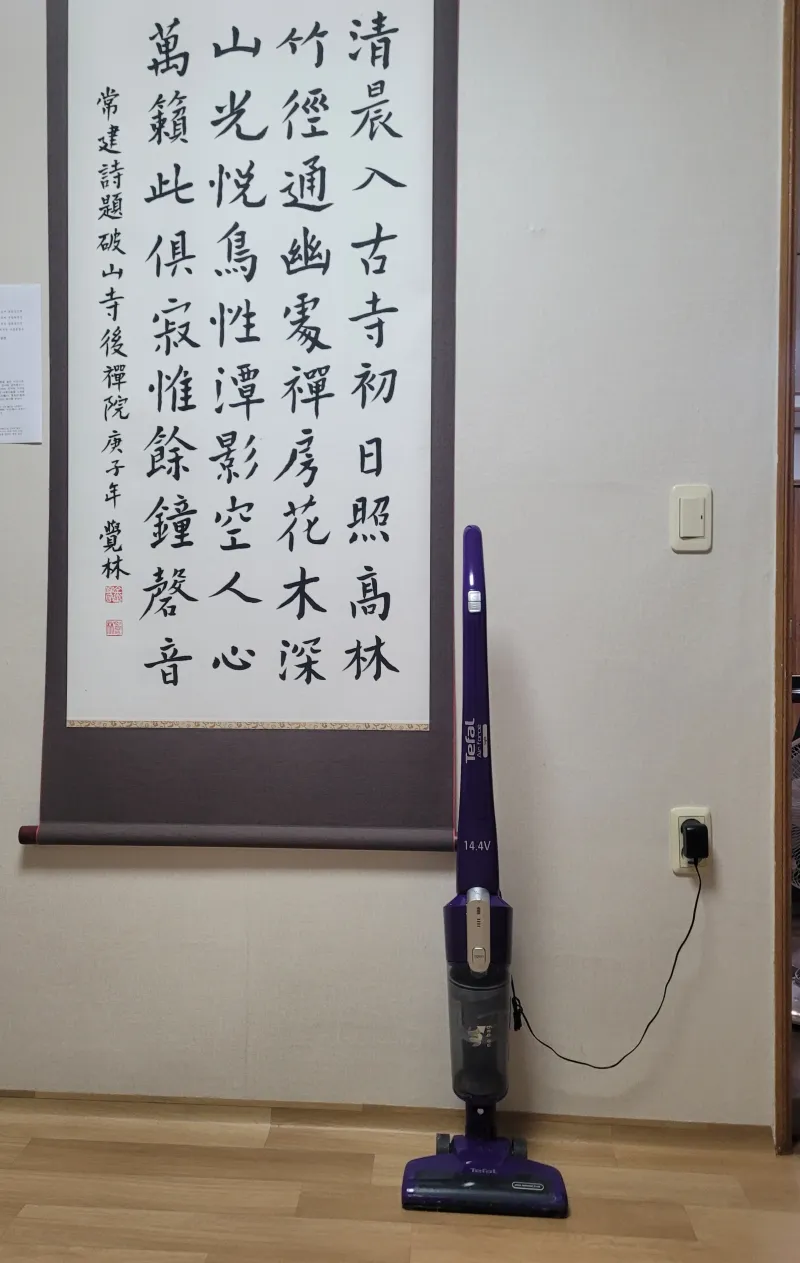 清晨入古寺初日照高林
竹徑通幽處禪房花木深
山光悅鳥性潭影空人心
萬籟此俱寂惟餘鐘磬音
常建詩題破山寺後禪院 庚子年 覺林
Tefal
Air force
14.4V
Tefal